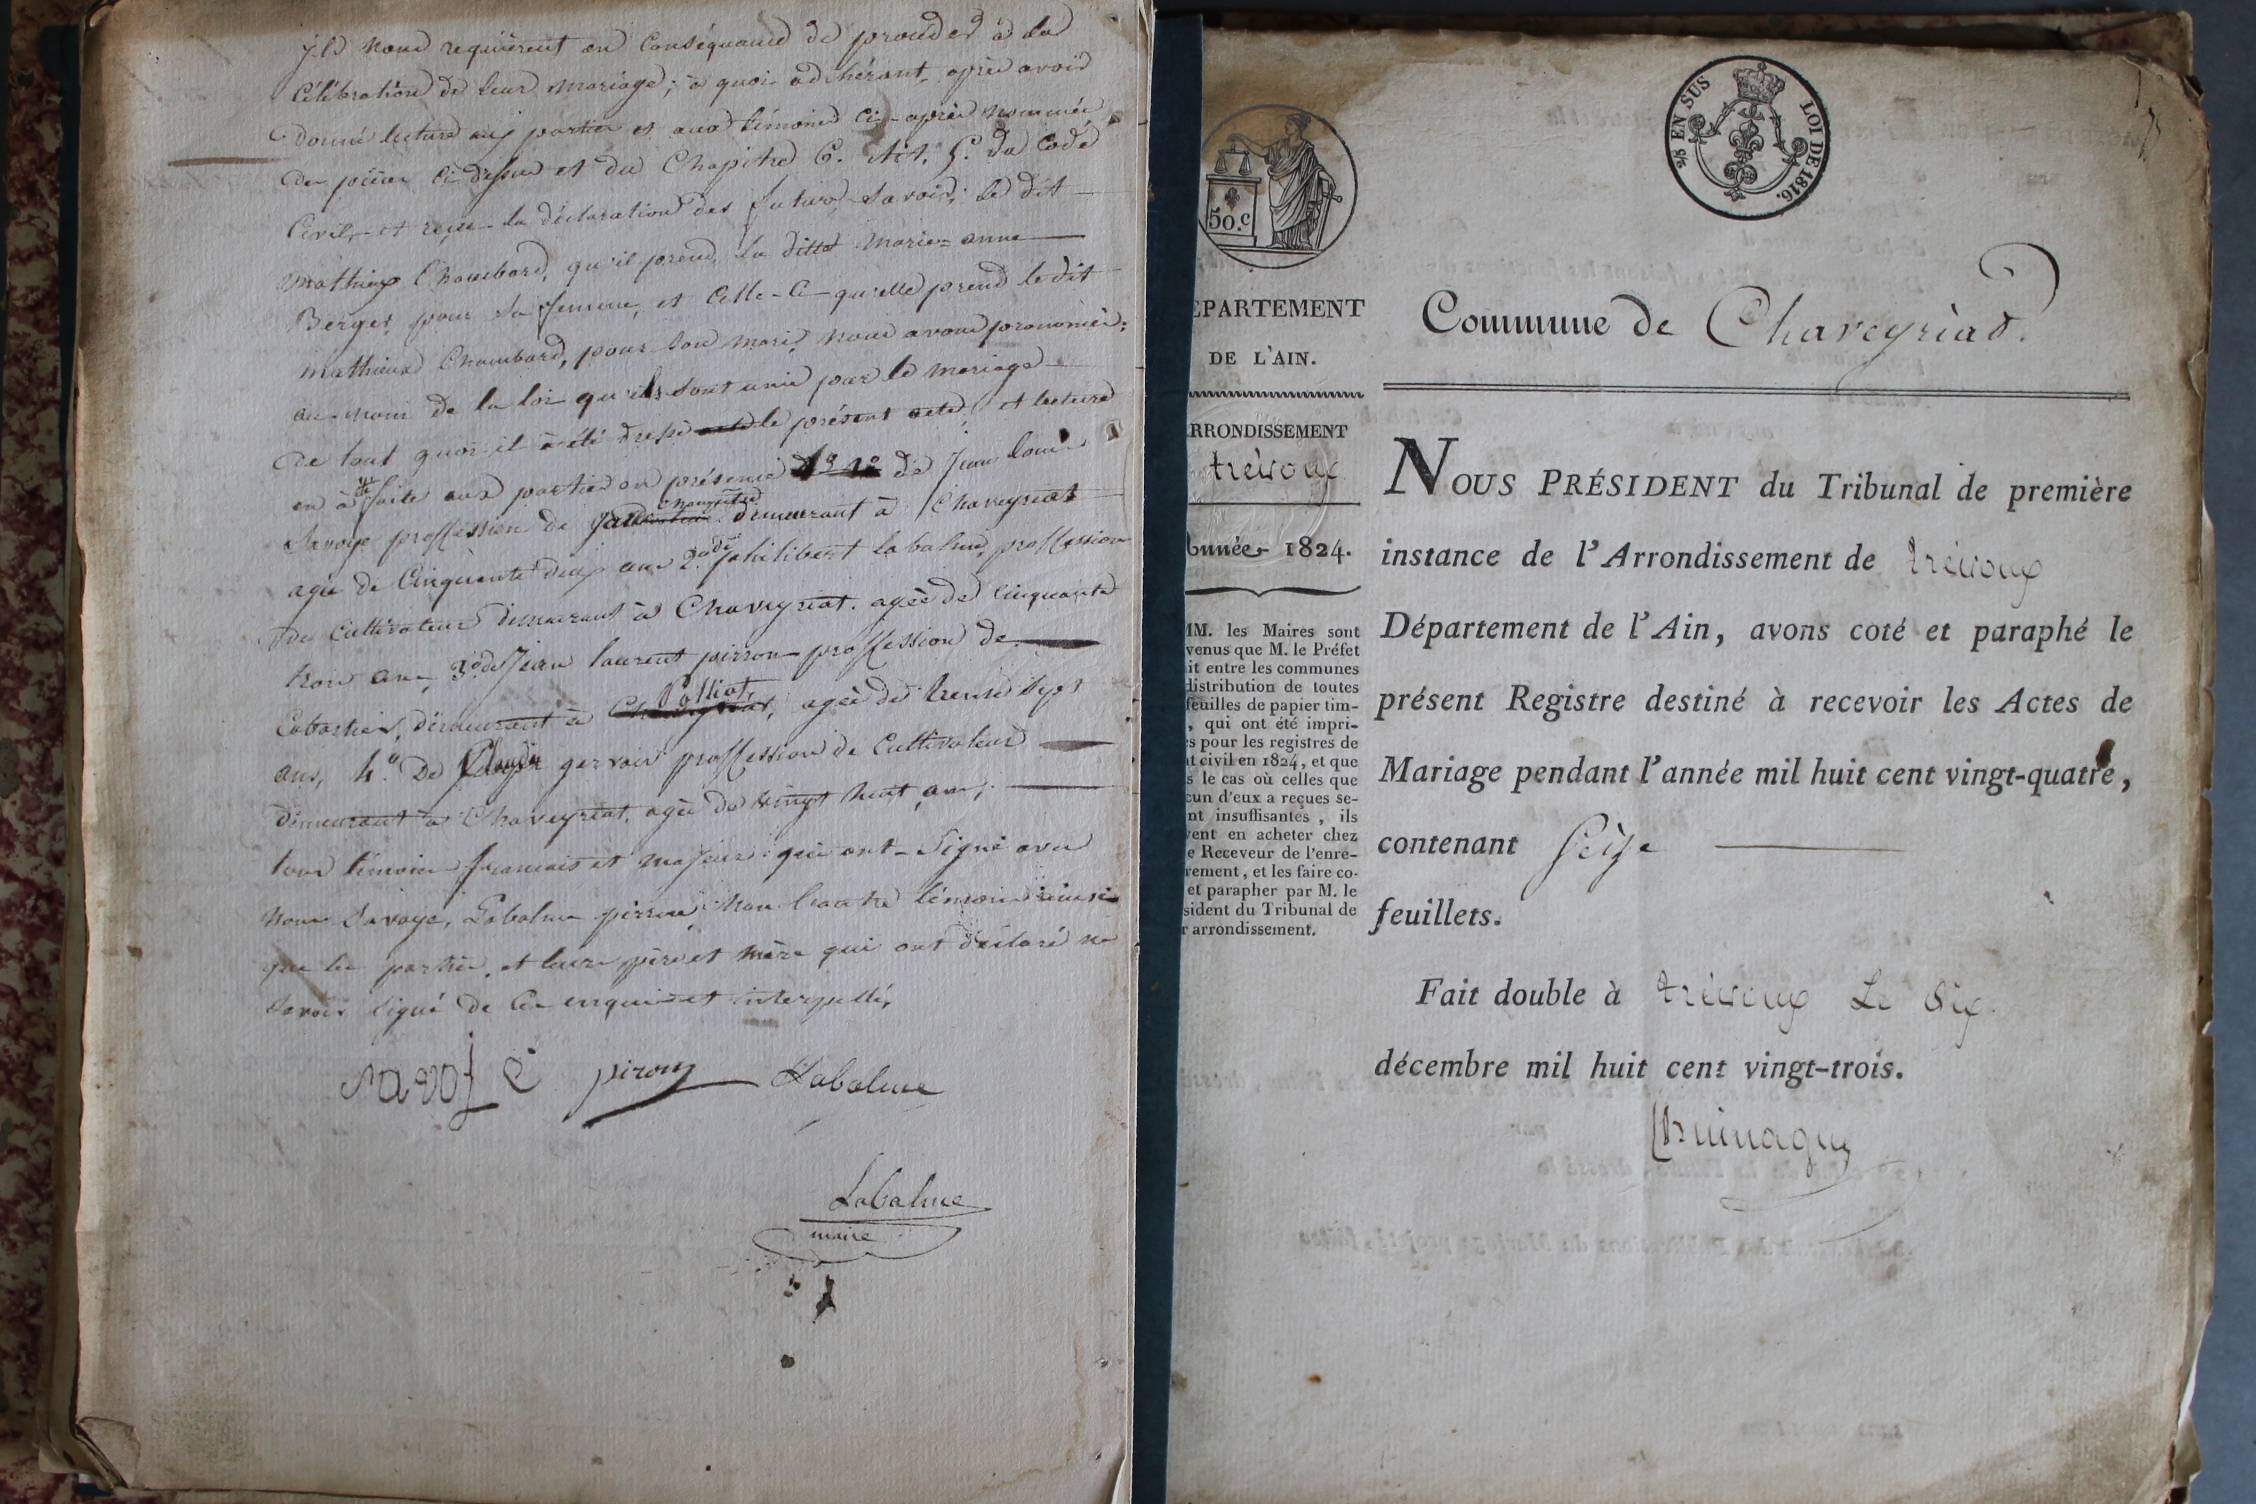 ils nous requièrent en Conséquance de procéder à la
Célébration de leur mariage; à quoi adhérant, après avoir
donné lecture aux parties et aux témoins ci-après nommés,
des pièces ci-dessus et du Chapitre 6. tit. 5. du Code
Civil, et reçu la déclaration des futurs, savoir; le dit
mathieux Chambard, qu'il prend, la ditte marie=anne
Berger, pour sa femme, et Celle-Ci qu'elle prend le dit
mathieux Chambard, pour son mari, nous avons prononcés:
au nom de la loi qu'ils sont unis par le mariage
de tout quoi il à été dressé le présent acte, et lecture
en à été faite aux parties en présence 1o de Jean louis
Savoye proffession de demeurant à Chaveyriat
agée de Cinquante deux ans 2o de philibert labalme, proffession
de cultivateur demeurant à Chaveyriat. agée de cinquante
trois ans, 3o de Jean laurent pirron proffession de
Cabartier, demeurant à agée de trente sept
ans, 4o De Claude gervais proffession de Cultivateur
demeurant à Chaveyriat, agée de vingt huit ans,
tous témoins francais et majeurs qui ont Signé avec
nous Savoye, Labalme pirron, non l'autre témoin ainsi
que les parties, et leurs père et mère qui ont déclaré ne
savoir signé de ce enquis et interpellés,
SavoyE piron Labalme
Labalme
maire
2/5 EN SUS LOI DE 1816.
50.c
EPARTEMENT
DE L'AIN.
RRONDISSEMENT
trévoux
Année 1824.
MM. les Maires sont
venus que M. le Préfet
it entre les communes
distribution de toutes
feuilles de papier tim-
, qui ont été impri-
s pour les registres de
t civil en 1824, et que
s le cas où celles que
cun d'eux a reçues se-
nt insuffisantes, ils
vent en acheter chez
e Receveur de l'enre-
rement, et les faire co-
et parapher par M. le
sident du Tribunal de
r arrondissement.
Commune de Chaveyriat.
NOUS PRÉSIDENT du Tribunal de première
instance de l'Arrondissement de trévoux
Département de l'Ain, avons coté et paraphé le
présent Registre destiné à recevoir les Actes de
Mariage pendant l'année mil huit cent vingt-quatre,
contenant Seize
feuillets.
Fait double à trévoux Le dix
décembre mil huit cent vingt-trois.